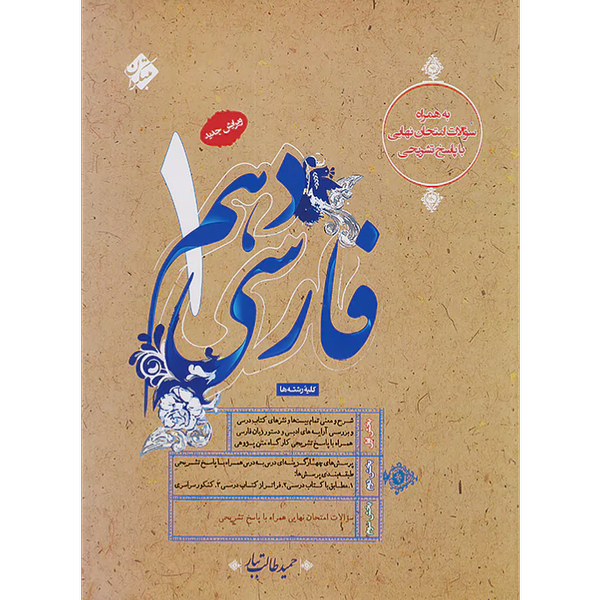 مبتکران
به همراه
سؤالات امتحان نهایی
با پاسخ تشریحی
ویرایش جدید
فارسی دهم ۱
کلیهٔ رشته‌ها
بخش اول
شرح و معنی تمام بیت‌ها و نثرهای کتاب درسی
و بررسی آرایه‌های ادبی و دستور زبان فارسی
همراه با پاسخ تشریحی کارگاه متن پژوهی
بخش دوم
پرسش‌های چهارگزینه‌ای درس به درس همراه با پاسخ تشریحی
طبقه‌بندی پرسش‌ها:
۱. مطابق با کتاب درسی ۲. فراتر از کتاب درسی ۳. کنکور سراسری
بخش سوم
سؤالات امتحان نهایی همراه با پاسخ تشریحی
حمید طالب تبار